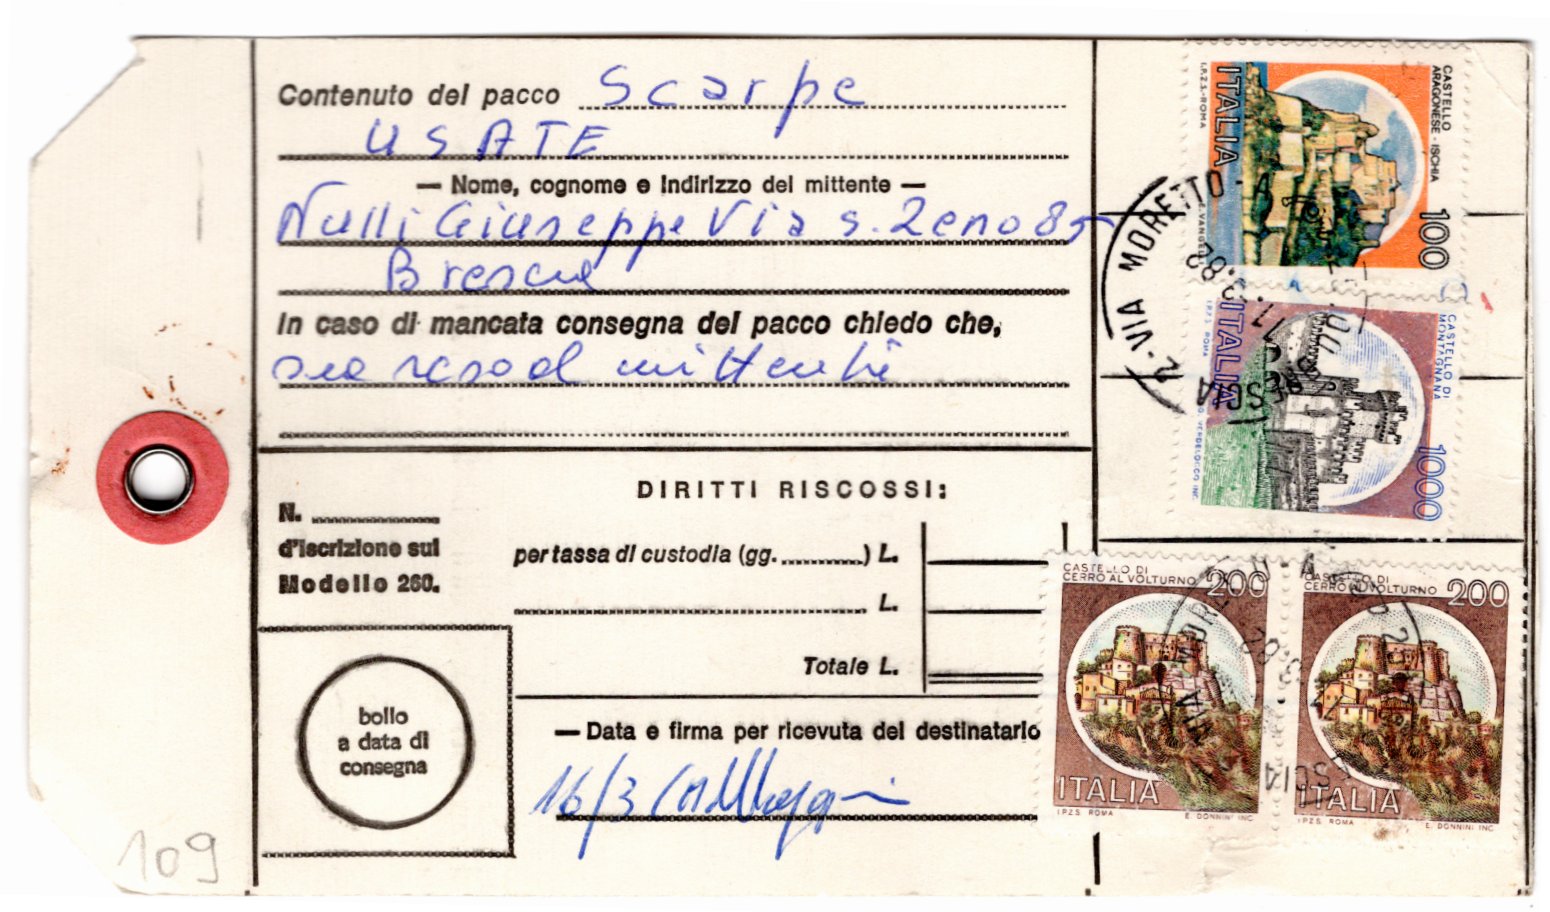 Contenuto del pacco Scarpe
USATE
— Nome, cognome e indirizzo del mittente —
Nulli Giuseppe Via S. Zeno 85
Brescia
In caso di mancata consegna del pacco chiedo che,
sia reso al mittente
DIRITTI RISCOSSI:
N. ..........
d'iscrizione sul
Modello 260.
per tassa di custodia (gg. ..........) L.
L.
Totale L.
bollo
a data di
consegna
— Data e firma per ricevuta del destinatario
16/3
109
CASTELLO
ARAGONESE - ISCHIA
100
ITALIA
I.P.Z.S. - ROMA
CASTELLO DI
MONTAGNANA
1000
ITALIA
I.P.Z.S. ROMA
VERDELOCCO INC.
R. VIA MORETTO
CASTELLO DI
CERRO AL VOLTURNO 200
ITALIA
I.P.Z.S. ROMA E. DONNINI INC.
CASTELLO DI
CERRO AL VOLTURNO 200
ITALIA
I.P.Z.S. ROMA E. DONNINI INC.